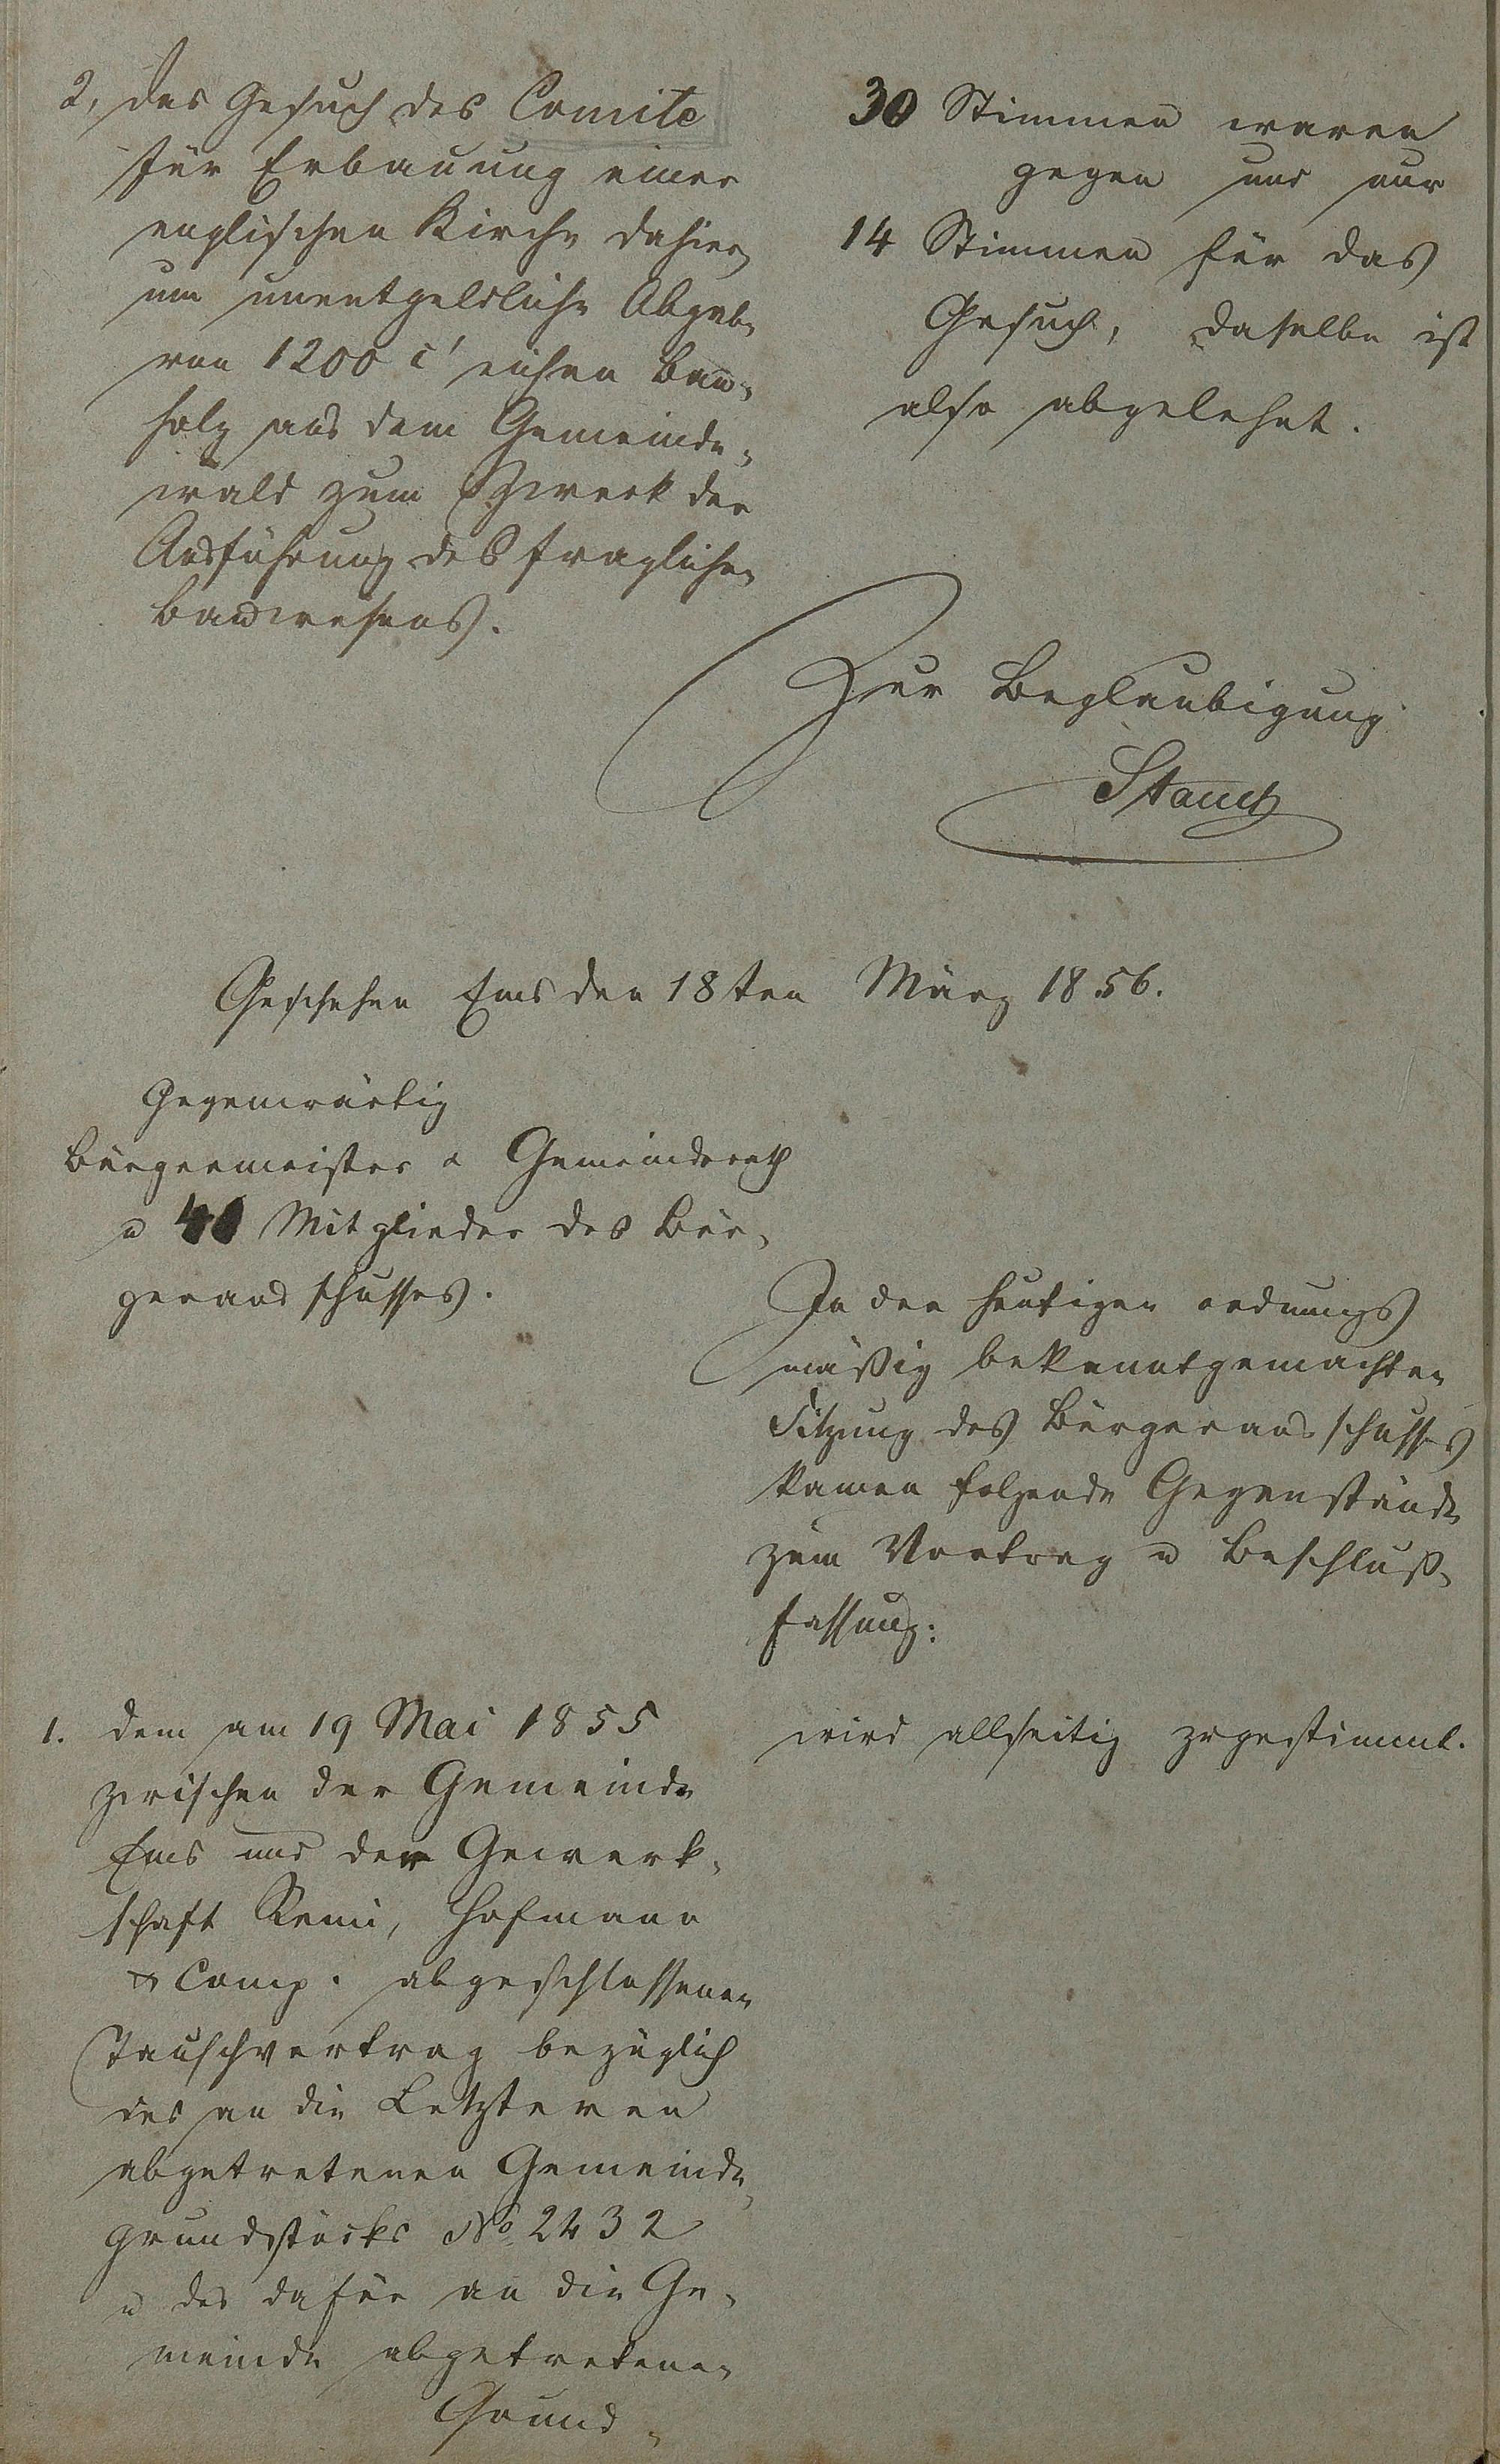 2, das Gesuch des Comite
für Erbauung einer
englischen Kirche dahier
um unentgeldliche Abgabe
von 1200 c' eichen Bau-
holz aus dem Gemeinde-
wald zum Zweck der
Ausführung des fraglichen
Bauwesens.
30 Stimmen waren
gegen und nur
14 Stimmen für das
Gesuch, daselbe ist
also abgelehnt.
Zur Beglaubigung
Geschehen Ems den 18ten März 1856.
Gegenwärtig
Bürgermeister & Gemeinderath
u Mitglieder des Bür-
gerausschusses.
In der heutigen ordnungs
mäßig bekanntgemachten
Sitzung des Bürgerausschusses
kamen folgende Gegenstände
zum Vortrag u Beschluß-
fassung:
1. dem am 19 Mai 1855
zwischen der Gemeinde
Ems und der Gewerk-
schaft Remi, Hofmann
& Comp. abgeschlossenen
Tauschvertrag bezüglich
des an die Letzteren
abgetretenen Gemeinde-
grundstücks No 2432
u des dafür an die Ge-
meinde abgetretenen
Grund-
wird allseitig zugestimmt.